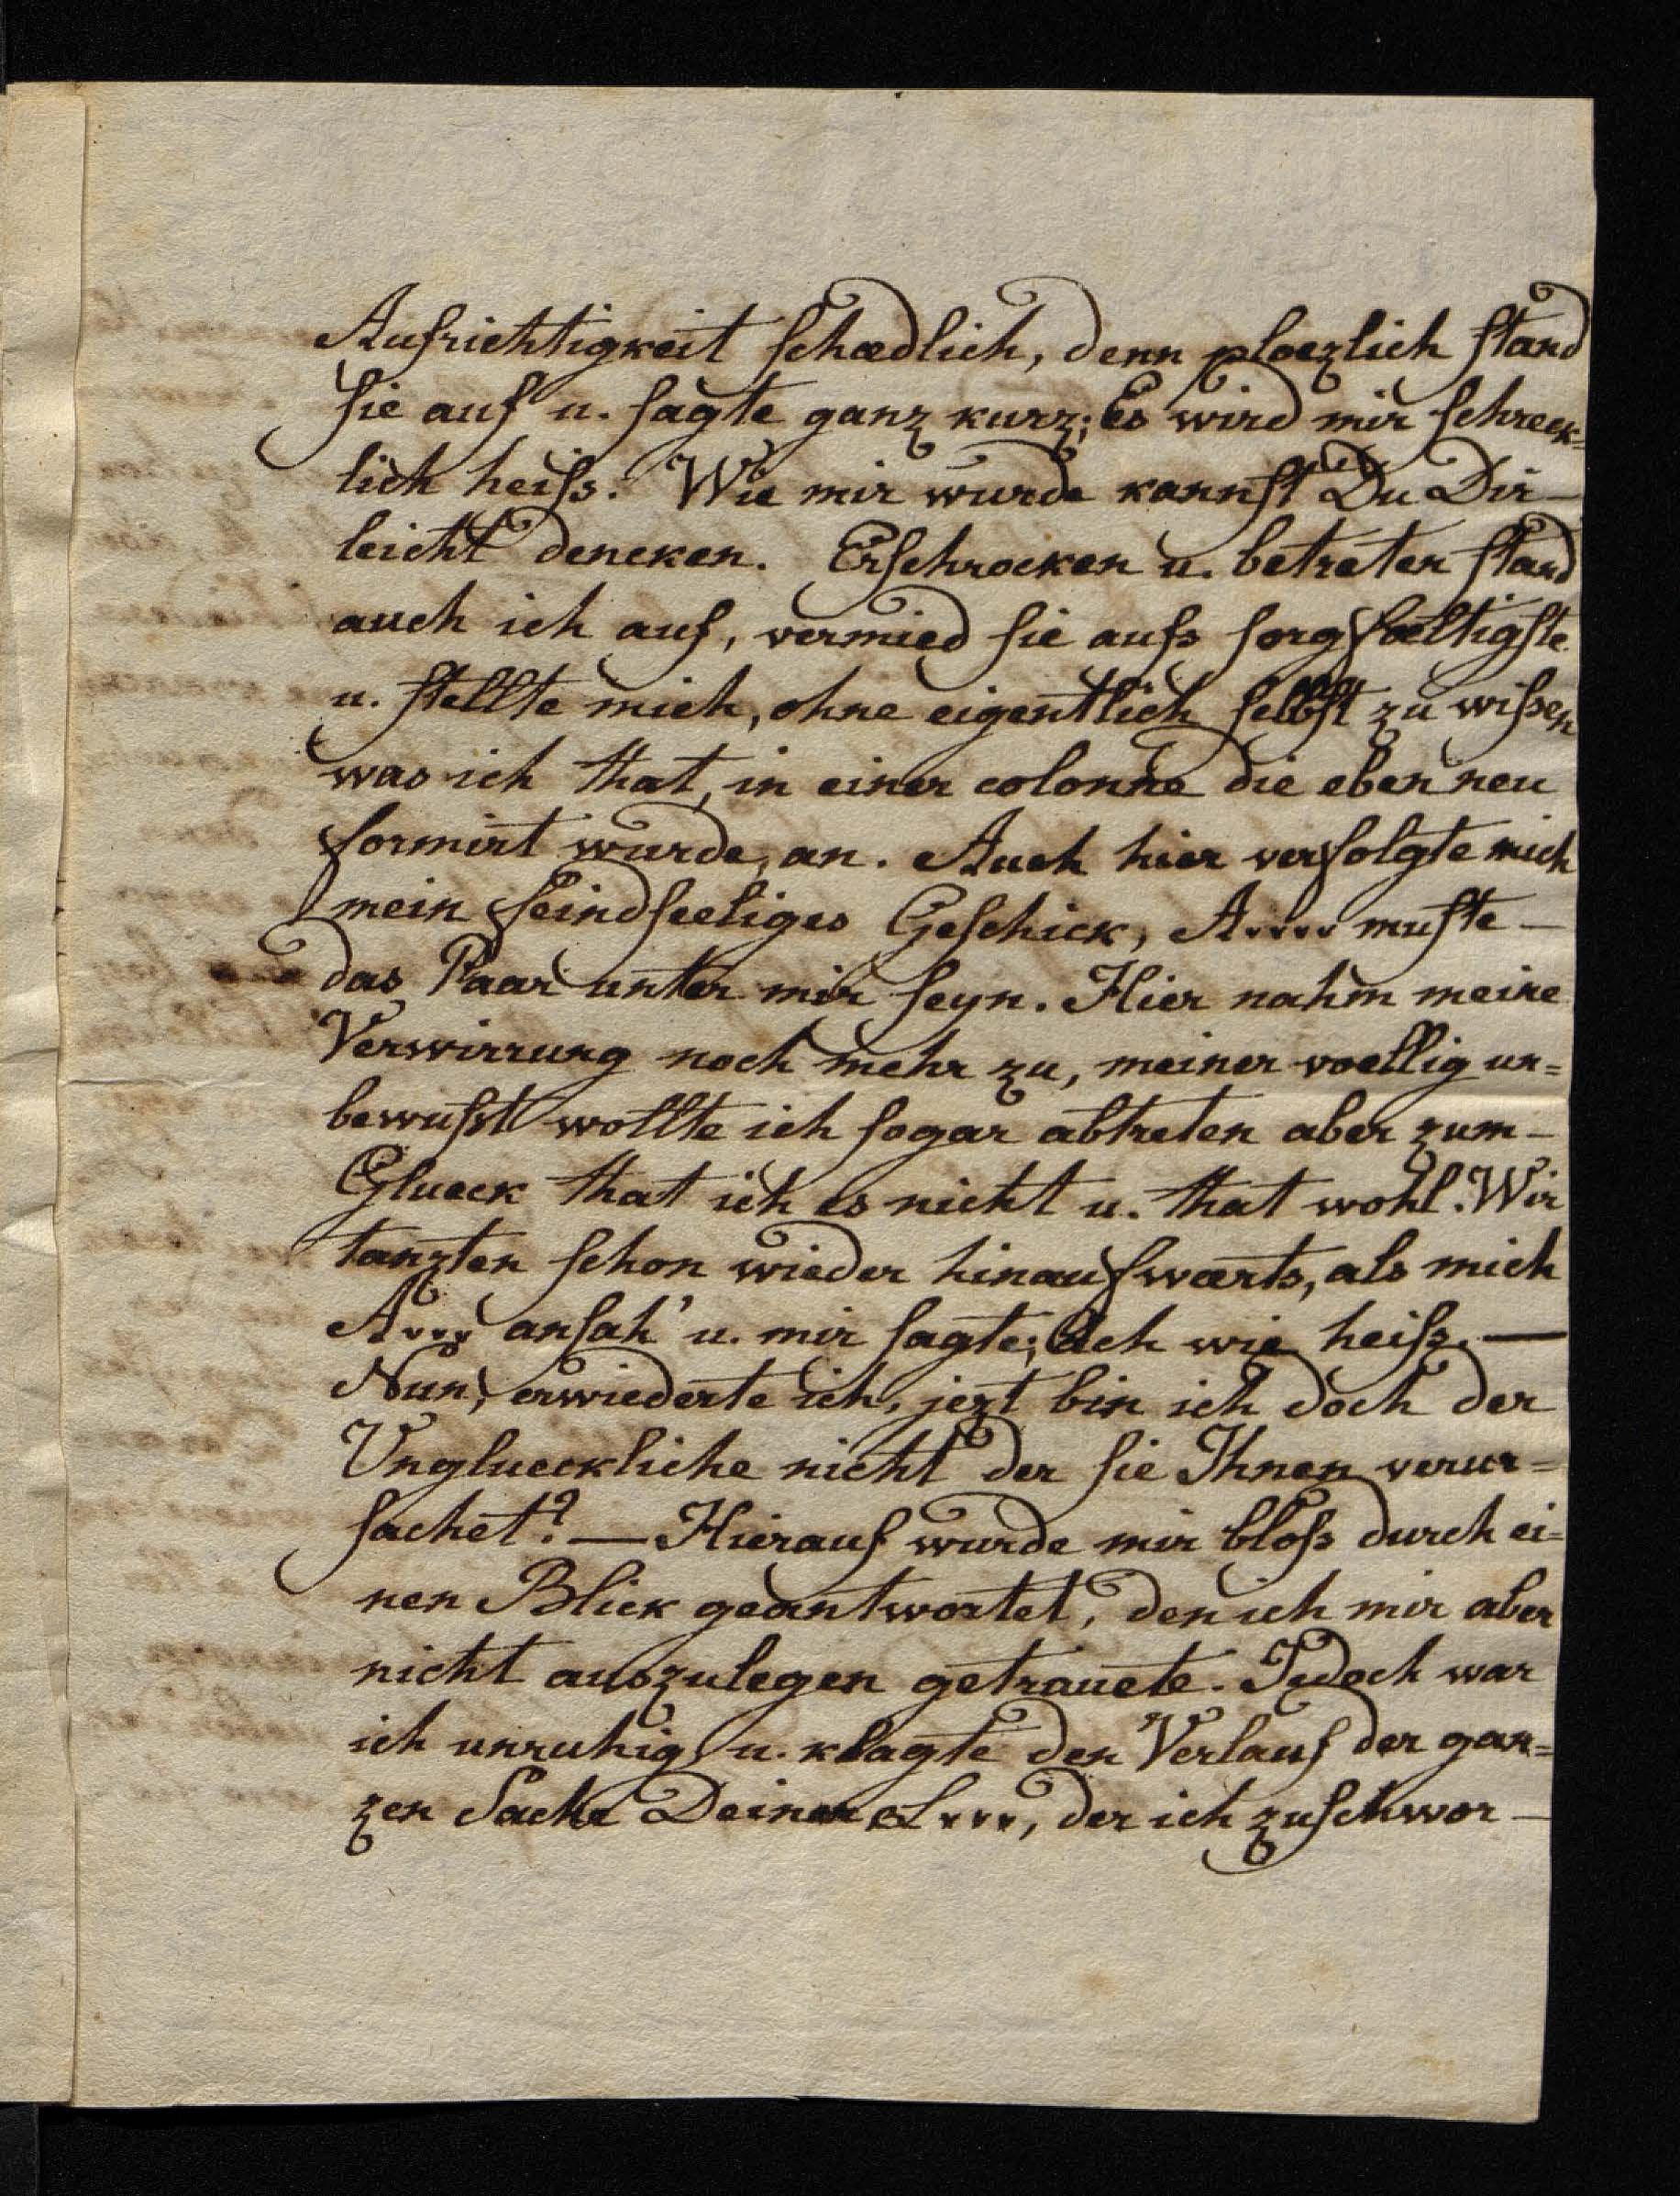 Aufrichtigkeit schædlich, denn plœzlich stand
sie auf u. sagte ganz kurz; Es wird mir schreck=
lich heiss. Wie mir wurde kannst Du Dir –
leicht dencken. Erschrocken u. betreten stand
auch ich auf, vermied sie aufs sorgfæltigste
u. stellte mich, ohne eigentlich selbst zu wissen
was ich that, in einer colonne die eben neu
formirt wurde, an. Auch hier verfolgte mich
mein feindseeliges Geschick, A.... muste –
das Paar unter mir seyn. Hier nahm meine
Verwirrung noch mehr zu, meiner vœllig un=
bewusst wollte ich sogar abtreten aber zum –
Glueck that ich es nicht u. that wohl. Wir
tanzten schon wieder hinaufwærts, als mich
A... ansah' u. mir sagte; Ach wie heiss. —
Nun, erwiederte ich, jezt bin ich doch der
Unglueckliche nicht der sie Ihnen verur=
sachet? — Hierauf wurde mir bloss durch ei=
nen Blick geantwortet, den ich mir aber
nicht auszulegen getrauete. Jedoch war
ich unruhig u. klagte den Verlauf der gan=
zen Sache Deiner L..., der ich zuschwor –